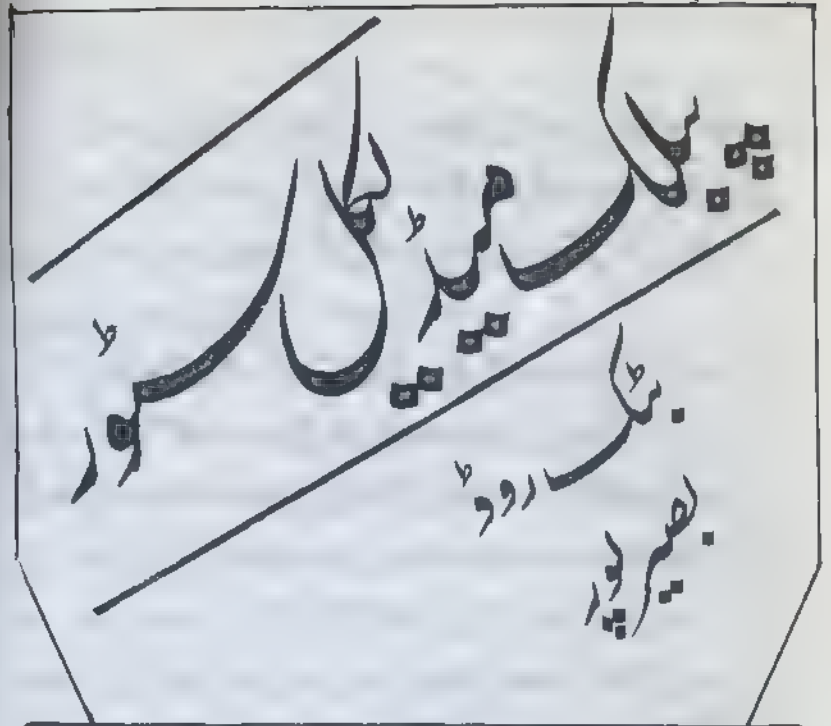 پاک میڈیکل سٹور
بٹک روڈ
بصیر پور